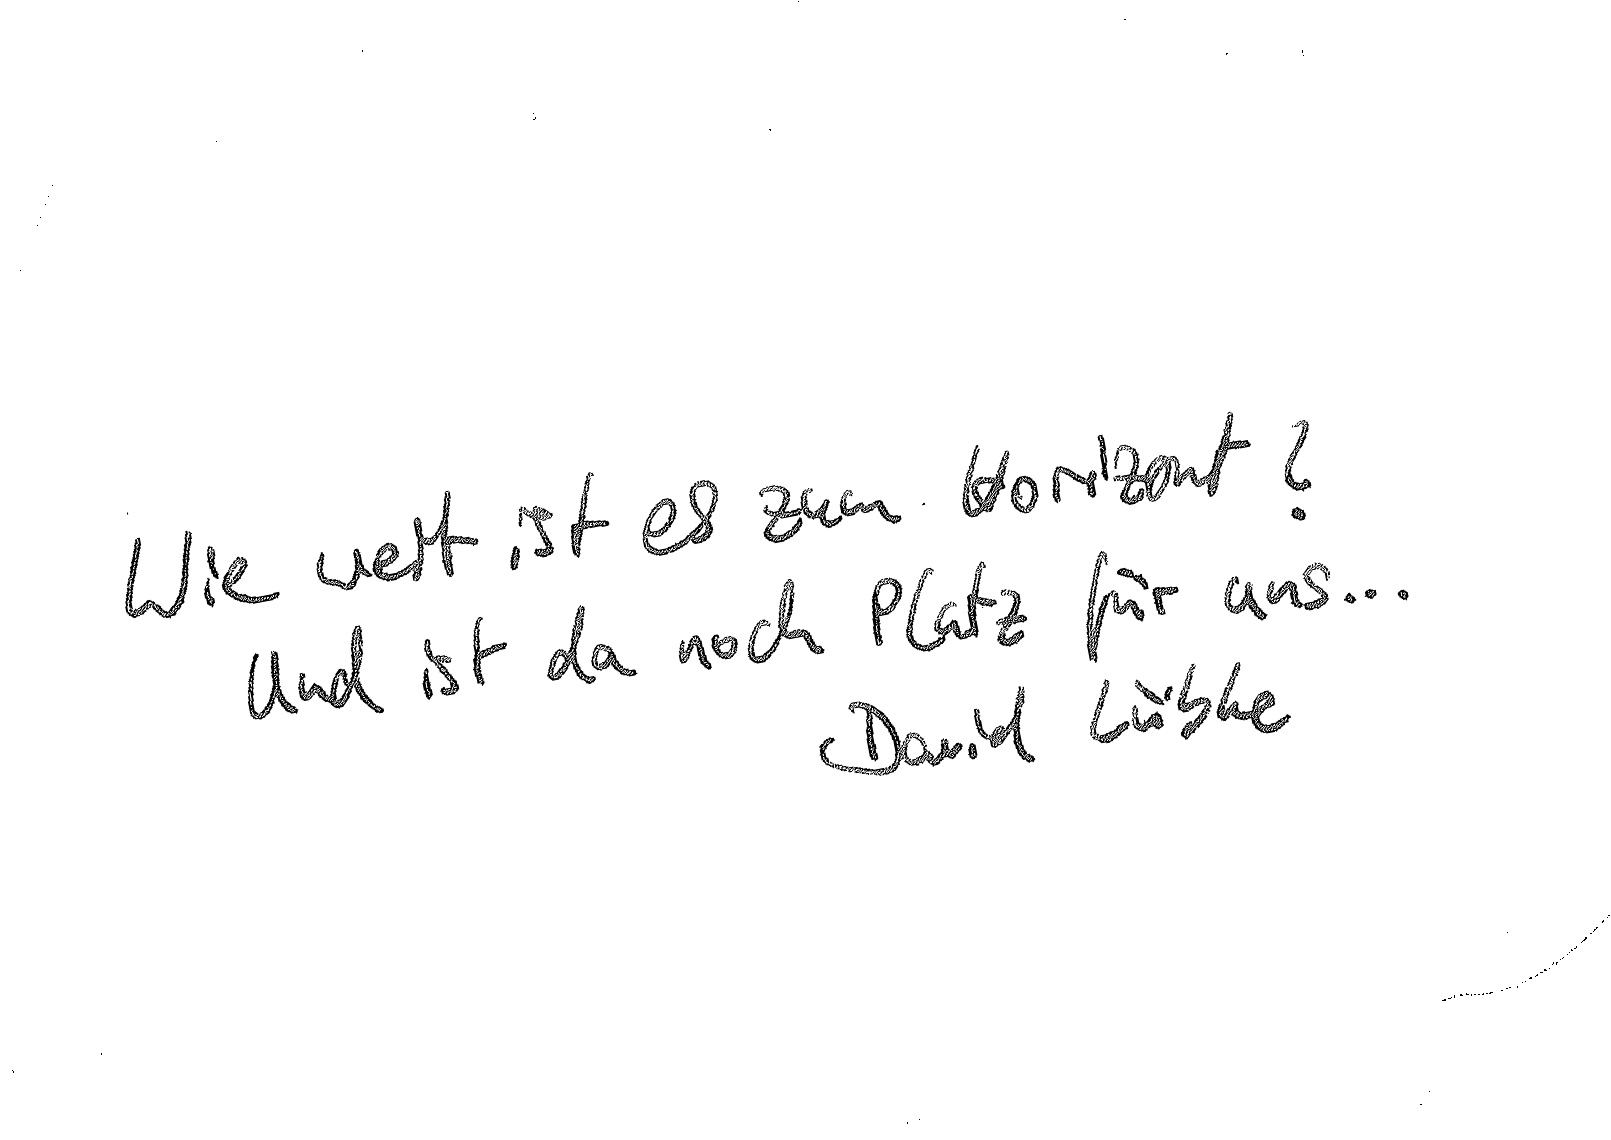 Wie weit ist es zum Horizont?
Und ist da noch Platz für uns...
David Lübke